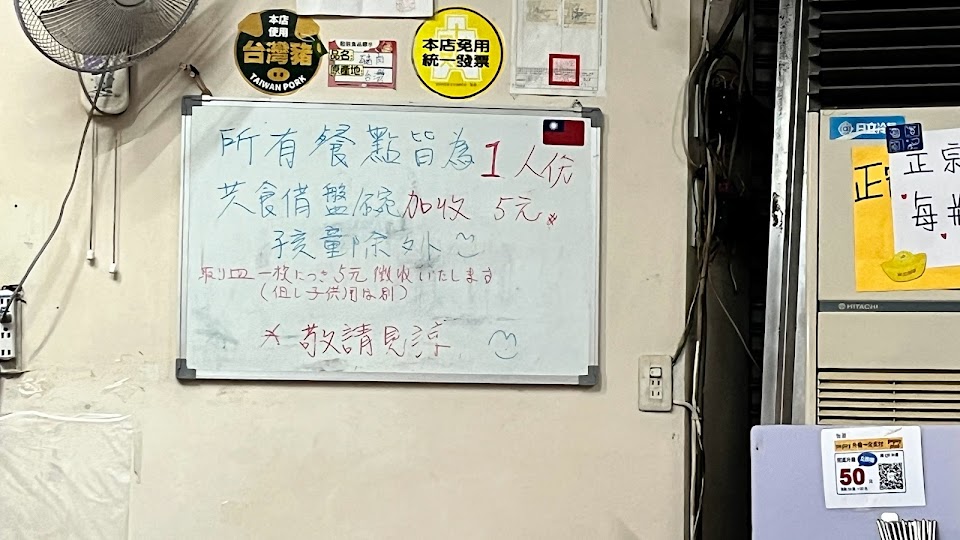 本店
使用
台灣豬
TAIWAN PORK
品名
原產地
台灣
本店免用
統一發票
所有餐點皆為1人份
共食備盤碗加收 5元
孩童除外
取り皿一枚につき5元徴収いたします
(但し子供用は別)
* 敬請見諒
日立冷氣
正宗
每瓶
HITACHI
50元